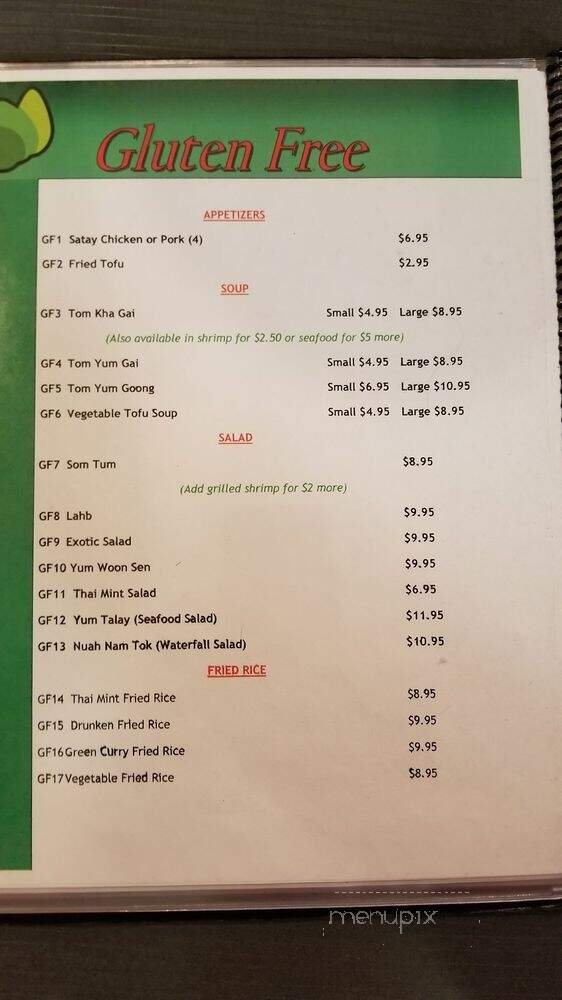 Gluten Free
APPETIZERS
GF1 Satay Chicken or Pork (4) $6.95
GF2 Fried Tofu $2.95
SOUP
GF3 Tom Kha Gai Small $4.95 Large $8.95
(Also available in shrimp for $2.50 or seafood for $5 more)
GF4 Tom Yum Gai Small $4.95 Large $8.95
GF5 Tom Yum Goong Small $6.95 Large $10.95
GF6 Vegetable Tofu Soup Small $4.95 Large $8.95
SALAD
GF7 Som Tum $8.95
(Add grilled shrimp for $2 more)
GF8 Lahb $9.95
GF9 Exotic Salad $9.95
GF10 Yum Woon Sen $9.95
GF11 Thai Mint Salad $6.95
GF12 Yum Talay (Seafood Salad) $11.95
GF13 Nuah Nam Tok (Waterfall Salad) $10.95
FRIED RICE
GF14 Thai Mint Fried Rice $8.95
GF15 Drunken Fried Rice $9.95
GF16Green Curry Fried Rice $9.95
GF17Vegetable Fried Rice $8.95
menupix